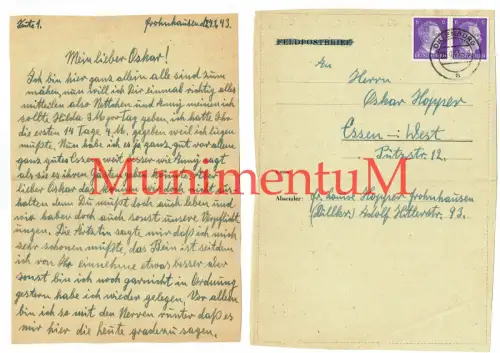 Seite 1. Frohnhausen d. 29.6.43.
Mein lieber Oskar!
Ich bin hier ganz allein alle sind zum
mähen, nun will ich Dir einmal richtig alles
mitteilen also Nettchen und Anny meinen ich
sollte Hilda 3 M pro Tag geben, ich hatte Ihr
die ersten 14 Tage 4 M. gegeben weil ich liegen
mußte. Nun habe ich es ja ganz gut vor allen
ganz gutes Essen weit besser wie Anny sagt
als sie es ihren
lieber Oskar das
halten denn Du mußt doch auch leben und
wir haben doch auch sonst unsere Verpflicht
ungen. Die Ärztin sagte mir daß ich mich
sehr schonen müßte, das Bein ist seitdem
ich von Ihr einnehme etwas besser aber
sonst bin ich noch garnicht in Ordnung
gestern habe ich wieder gelegen. Vor allem
bin ich so mit den Nerven runter daß es
mir hier die heute grade zu sagen.
FELDPOSTBRIEF
An
Herrn
Oskar Hopper
Essen-West
Pützstr. 12.
Absender: Fr. Hopper Frohnhausen
(Dillkr.) Adolf Hitlerstr. 92.
DILLENBURG
MunimentuM